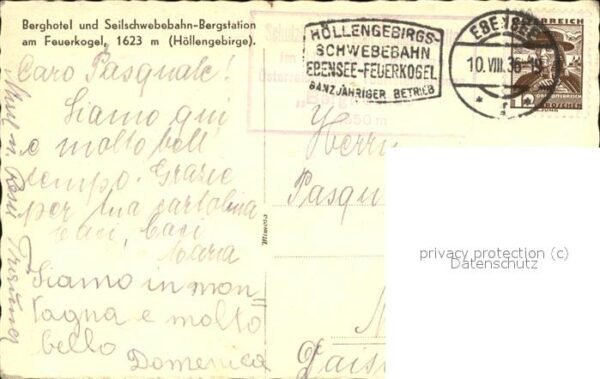 Berghotel und Seilschwebebahn-Bergstation
am Feuerkogel, 1623 m (Höllengebirge).
Caro Pasquale!
Siamo qui
e molto bell'
tempo. Grazie
per tua cartolina
Baci, Baci
Maria
Siamo in mon
tagna e molto
bello
Domenica
Mimosa
HÖLLENGEBIRGS-
SCHWEBEBAHN
EBENSEE-FEUERKOGEL
GANZJÄHRIGER BETRIEB
EBENSEE
10.VIII.36
ÖSTERREICH
12
GROSCHEN
Herrn
Pasqua
privacy protection (c)
Datenschutz